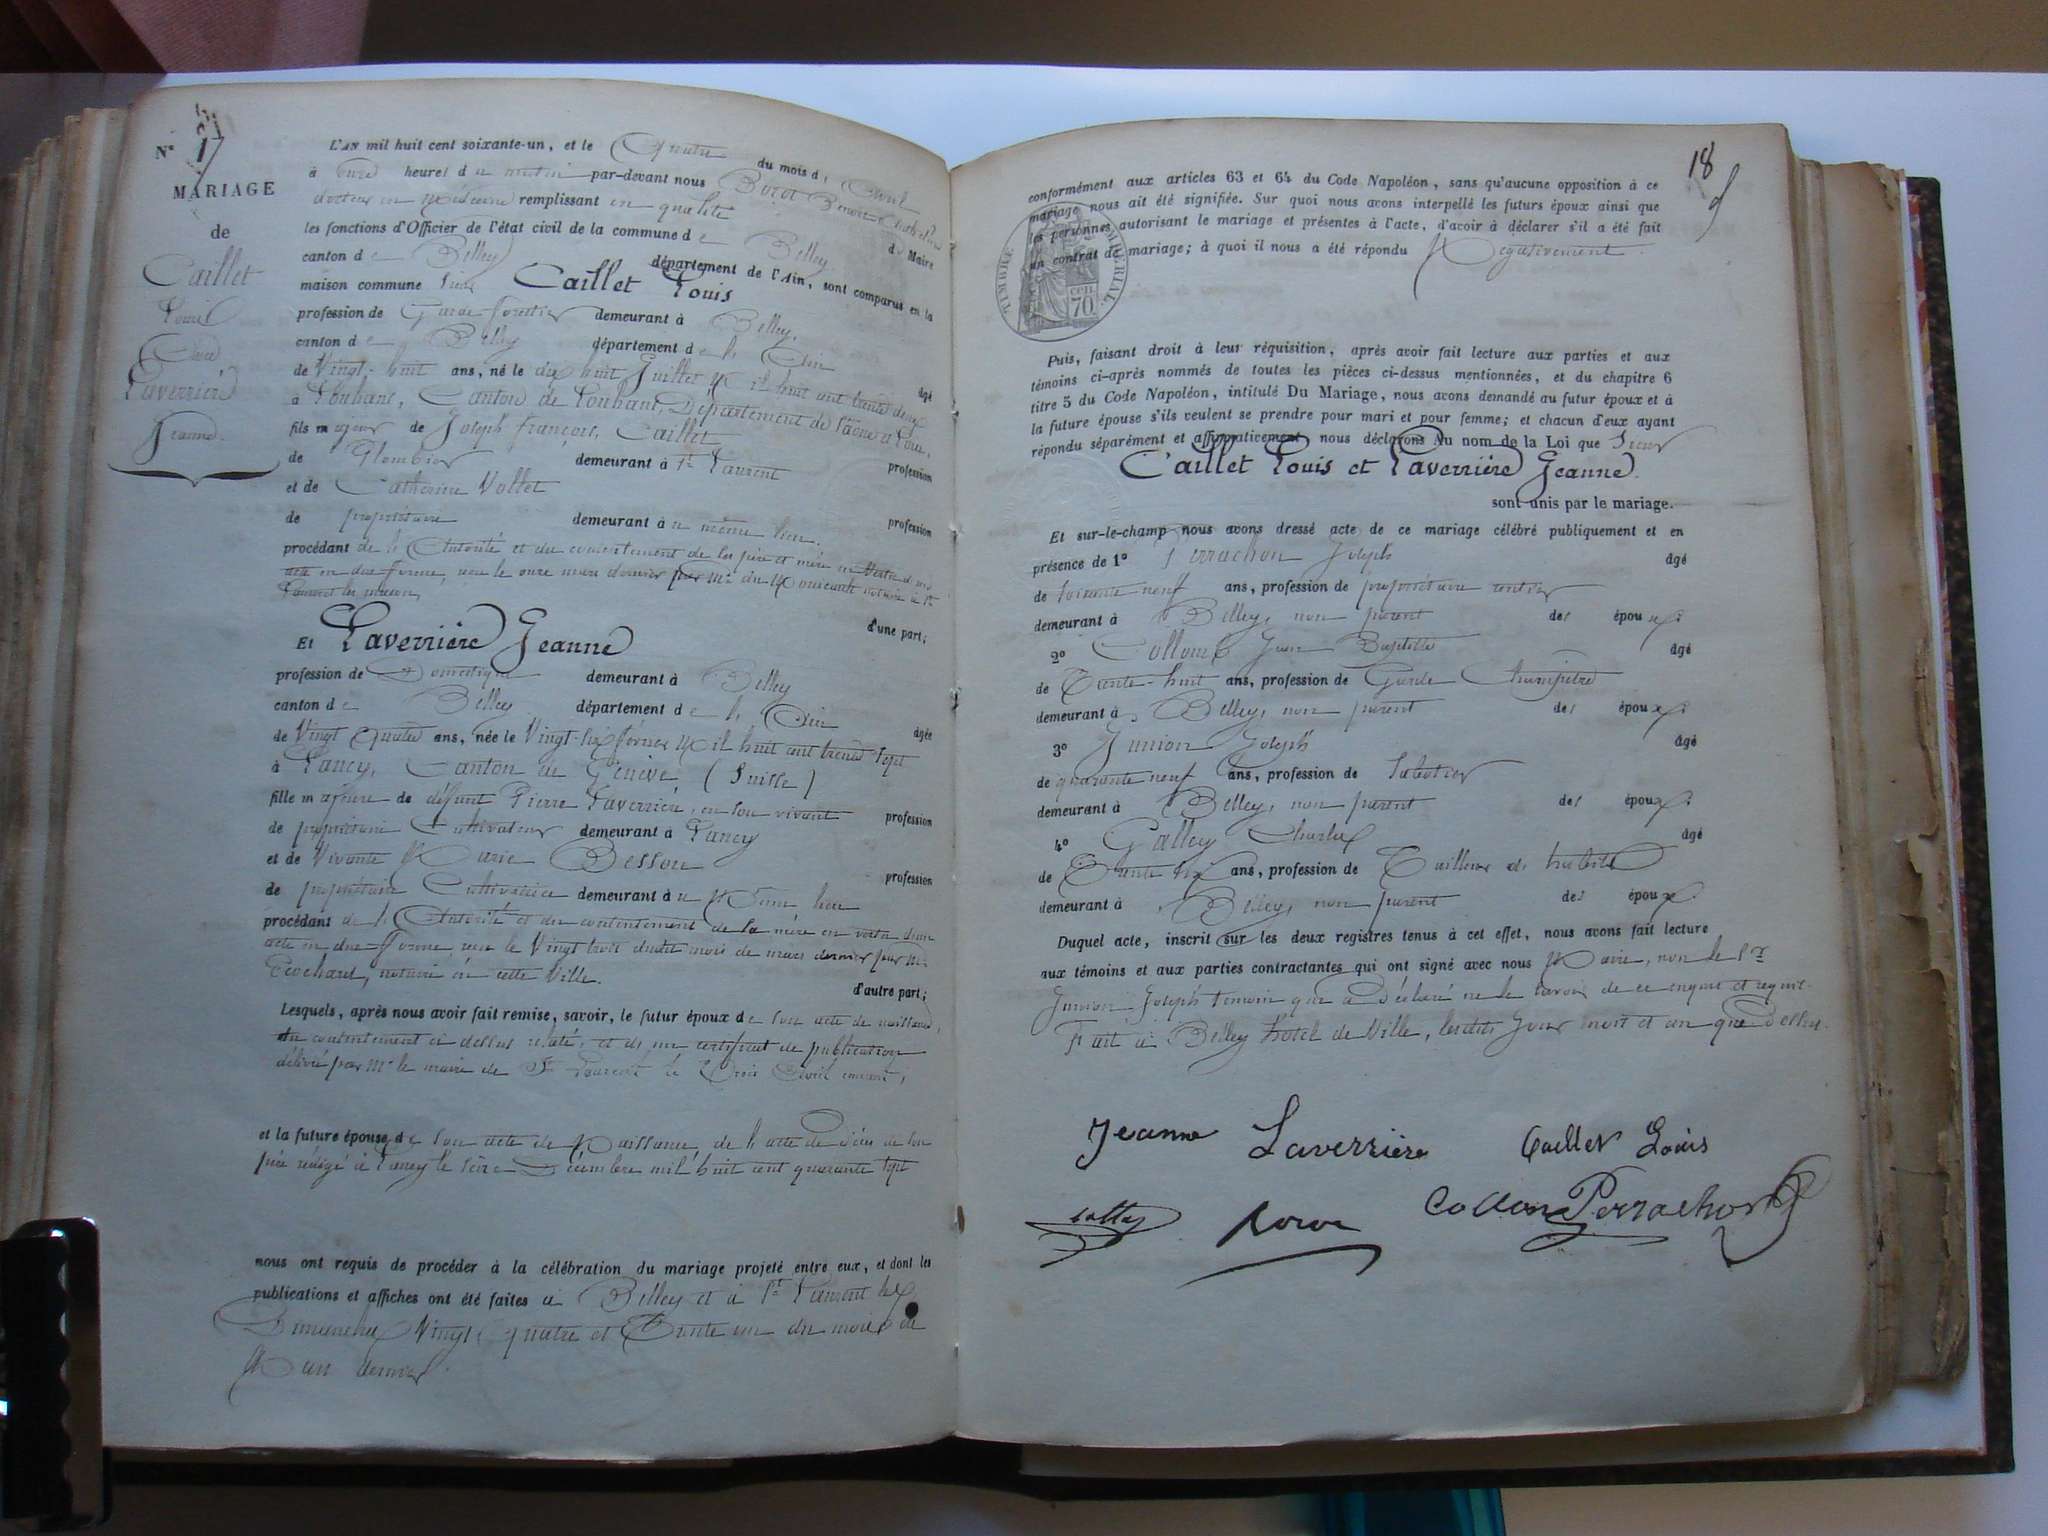 N° 17
MARIAGE
de
Caillet
Louis
Et
Laverrière
Jeanne.
L'AN mil huit cent soixante-un, et le Quatre du mois d' Avril
à onze heures du matin par-devant nous
docteur en Médecine remplissant en qualité de Maire
les fonctions d'Officier de l'état civil de la commune de Belley
canton de Belley département de l'Ain, sont comparus en la
maison commune Sieur Caillet Louis
profession de Garde forestier demeurant à Belley,
canton de Belley département de l' Ain âgé
de Vingt-huit ans, né le dix huit Juillet Mil huit cent trente deux
à Louhans, Canton de Louhans, Département de Saône et Loire,
fils majeur de Joseph François Caillet profession
de Plombier demeurant à St Laurent
et de Catherine Vollet profession
de propriétaire demeurant au même lieu.
procédant de l'Autorité et du consentement de ses père et mère en vertu d'un
acte en due forme, reçu le onze mars dernier par Me notaire à St
Laurent les macon,
d'une part;
Et Laverrière Jeanne
profession de Domestique demeurant à Belley
canton de Belley département de l' Ain âgée
de Vingt Quatre ans, née le Vingt-six février Mil huit cent trente sept
à Lancy, Canton de Genève (Suisse)
fille majeure de défunt Pierre Laverrière, en son vivant profession
de propriétaire Cultivateur demeurant à Lancy
et de Vivante Marie Besson profession
de propriétaire Cultivatrice demeurant au Même lieu
procédant de l'Autorité et du consentement de sa mère en vertu d'un
acte en due forme, reçu le Vingt trois dudit mois de mars dernier par Me
notaire en cette Ville.
d'autre part;
Lesquels, après nous avoir fait remise, savoir, le futur époux de son acte de naissance,
du consentement ci dessus relaté, et du certificat de publication
délivré par Mr le maire de St Laurent le Trois Avril courant,
et la future épouse de son acte de Naissance, de l'acte de décès de son
père rédigé à Lancy le seize Décembre mil huit cent quarante sept
nous ont requis de procéder à la célébration du mariage projeté entre eux, et dont les
publications et affiches ont été faites à Belley et à St Laurent les
Dimanches Vingt quatre et Trente un du mois de
Mars dernier.
18
conformément aux articles 63 et 64 du Code Napoléon, sans qu'aucune opposition à ce
mariage nous ait été signifiée. Sur quoi nous avons interpellé les futurs époux ainsi que
les personnes autorisant le mariage et présentes à l'acte, d'avoir à déclarer s'il a été fait
un contrat de mariage; à quoi il nous a été répondu Négativement.
TIMBRE IMPÉRIAL
70 cen.
Puis, faisant droit à leur réquisition, après avoir fait lecture aux parties et aux
témoins ci-après nommés de toutes les pièces ci-dessus mentionnées, et du chapitre 6
titre 5 du Code Napoléon, intitulé Du Mariage, nous avons demandé au futur époux et à
la future épouse s'ils veulent se prendre pour mari et pour femme; et chacun d'eux ayant
répondu séparément et affirmativement nous déclarons Au nom de la Loi que Sieur
Caillet Louis et Laverrière Jeanne.
sont unis par le mariage.
Et sur-le-champ nous avons dressé acte de ce mariage célébré publiquement et en
présence de 1° Perrachon Joseph âgé
de soixante neuf ans, profession de propriétaire rentier
demeurant à Belley, non parent des époux;
2° Collomb Jean Baptiste âgé
de Trente-huit ans, profession de Garde Champêtre
demeurant à Belley, non parent des époux;
3° Junion Joseph âgé
de quarante neuf ans, profession de Sabotier
demeurant à Belley, non parent des époux;
4° Galley Charles âgé
de Trente six ans, profession de Tailleur d'habits
demeurant à Belley, non parent des époux.
Duquel acte, inscrit sur les deux registres tenus à cet effet, nous avons fait lecture
aux témoins et aux parties contractantes qui ont signé avec nous Maire, non le Sr
Junion Joseph temoin qui a déclaré ne le savoir de ce enquis et requis.
Fait à Belley hôtel de Ville, lesdits Jour mois et an que dessus.
Jeanne Laverrière Caillet Louis
Collomb Perrachon